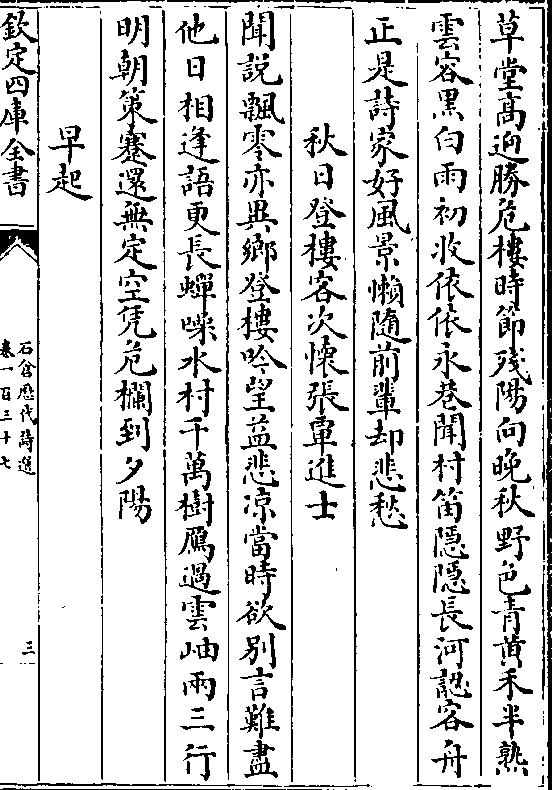 草堂高迥勝危樓時節殘陽向晚秋野色青黄禾半熟
雲容黒白雨初收依依永巷聞村笛隠隠長河認客舟
正是詩家好風景懶隨前輩却悲愁
秋日登樓客次懐張覃進士
聞說飄零亦異鄉登樓吟望益悲凉當時欲别言難盡
他日相逢語更長蟬噪水村千萬樹鴈過雲岫兩三行
明朝策蹇還無定空凭危欄到夕陽
早起
欽定四庫全書
石倉歴代詩選
卷一百三十七
三